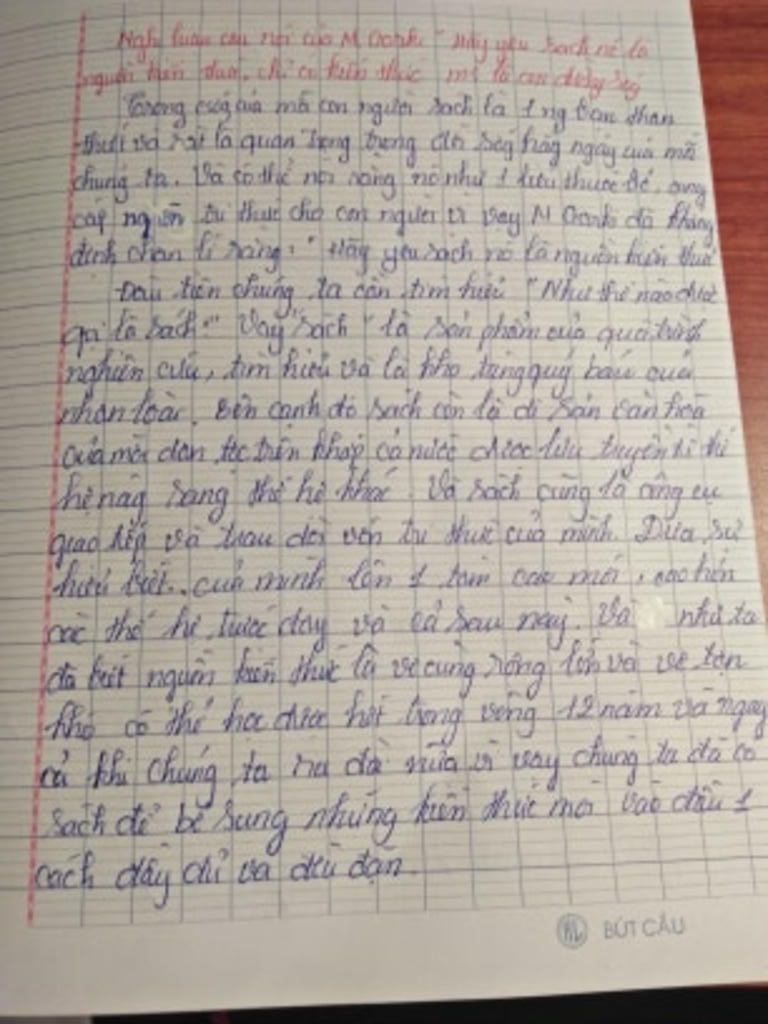 Nghị luận câu nói của M Gorki "Hãy yêu sách nó là
nguồn kiến thức, chỉ có kiến thức mới là con đường sống
Trong cuộc của mỗi con người sách là 1 ng bạn thân
thiết và rất là quan trọng trong đời sống hằng ngày của mỗi
chúng ta. Và có thể nói rằng nó như 1 kiểu thước để cung
cấp nguồn tri thức cho con người vì vậy M Gorki đã khẳng
định chân lí rằng: "Hãy yêu sách nó là nguồn kiến thức
Đầu tiên chúng ta cần tìm hiểu "Như thế nào được
gọi là sách?" Vậy "sách" là sản phẩm của quá trình
nghiên cứu, tìm hiểu và là kho tàng quý báu của
nhân loại. Bên cạnh đó sách còn là di sản văn hoá
của mỗi dân tộc trên khắp cả nước được lưu truyền từ thế
hệ này sang thế hệ khác. Và sách cũng là công cụ
giao tiếp và trau dồi vốn tri thức của mình. Đưa sự
hiểu biết của mình lên 1 tầm cao mới, cao hơn
các thế hệ trước đây và cả sau này. Và như ta
đã biết nguồn kiến thức là vô cùng rộng lớn và vô tận
khó có thể học được hết trong vòng 12 năm và ngay
cả khi chúng ta ra đời nữa vì vậy chúng ta đã có
sách để bổ sung những kiến thức mới vào đầu 1
cách đầy đủ và đều đặn.
BÚT CẦU